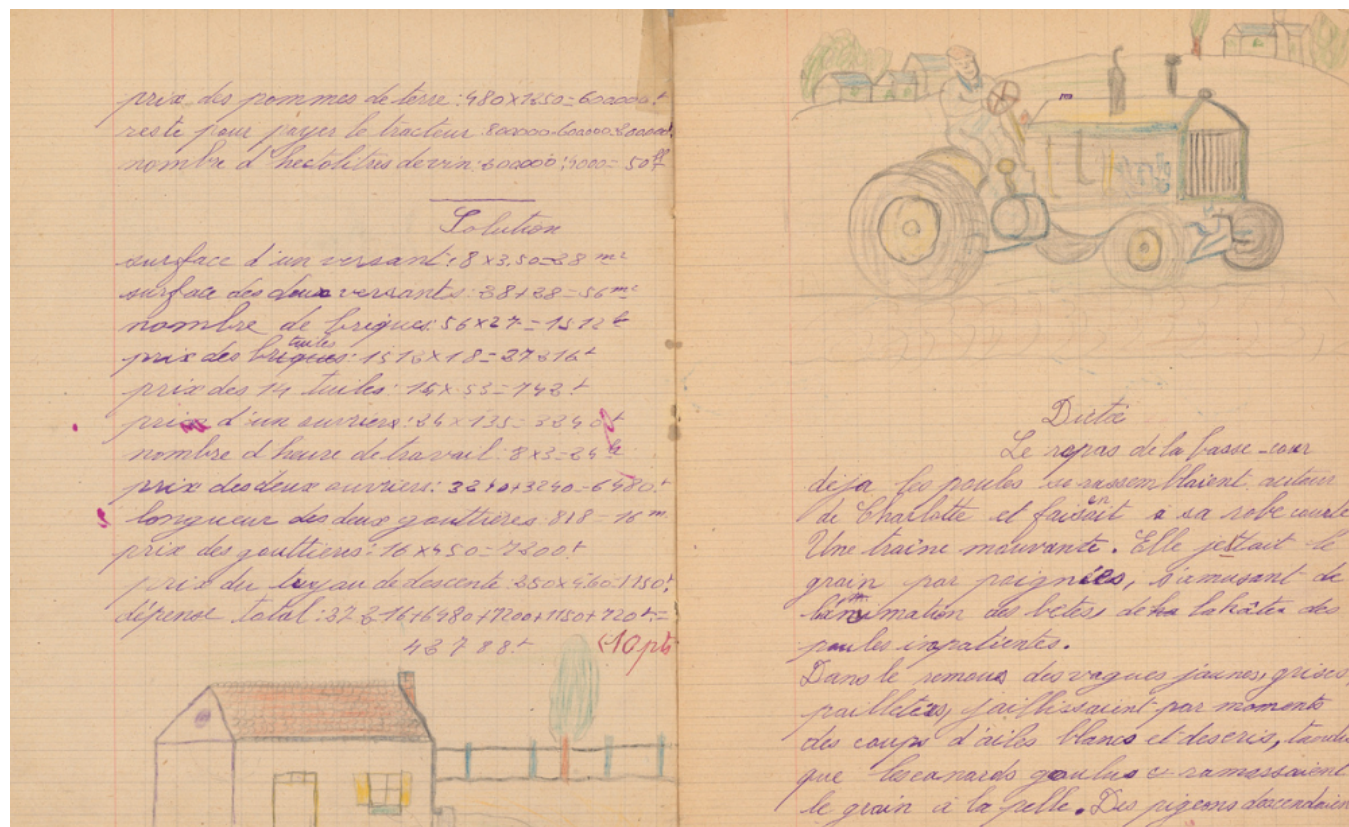 prix des pommes de terre : 480 x 1250 = 600000f
reste pour payer le tracteur : 800000-600000=200000f
nombre d'hectolitres de vin : 200000 : 4000 = 50
Solution
surface d'un versant : 8 x 3,50 = 28 m²
surface des deux versants : 28 + 28 = 56 m²
nombre de briques : 56 x 27 = 1512
prix des briques tuiles : 1512 x 18 = 27216f
prix des 14 tuiles : 14 x 53 = 742f
prix d'un ouvriers : 24 x 135 = 3240f
nombre d'heure de travail : 8x3 = 24 h
prix des deux ouvriers : 3240+3240 = 6480f
longueur des deux gouttières : 8+8 = 16 m
prix des gouttières : 16 x 450 = 7200f
prix du tuyau de descente : 250 x 4,60 = 1150f
dépense total : +6480+7200+1150+
43788f <10 pts
Dictée
Le repas de la basse-cour
déja les poules se rassemblaient autour
de Charlotte et faisait en à sa robe courte
Une traîne mouvante. Elle jettait le
grain par poignées, s'amusant de
des bêtes, de la hâte des
poules impatientes.
Dans le remous des vagues jaunes, grises
pailletées, jaillissaient par moments
des coups d'ailes blancs et des cris, tandis
que les canards goulus ramassaient
le grain à la pelle. Des pigeons descendaient